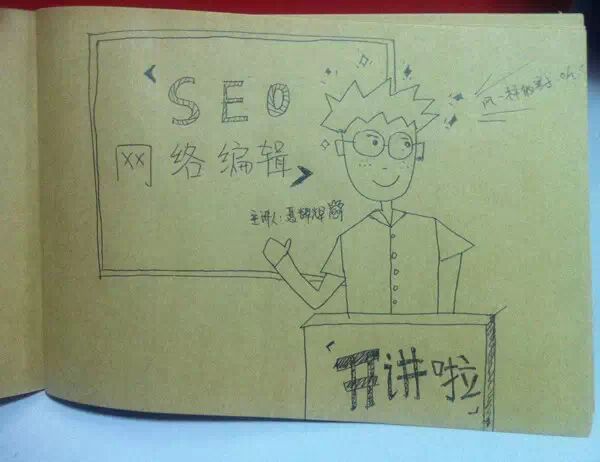 《SEO
网络编辑》
主讲人：聂辉辉
风一样的男子 oh
「开讲啦」